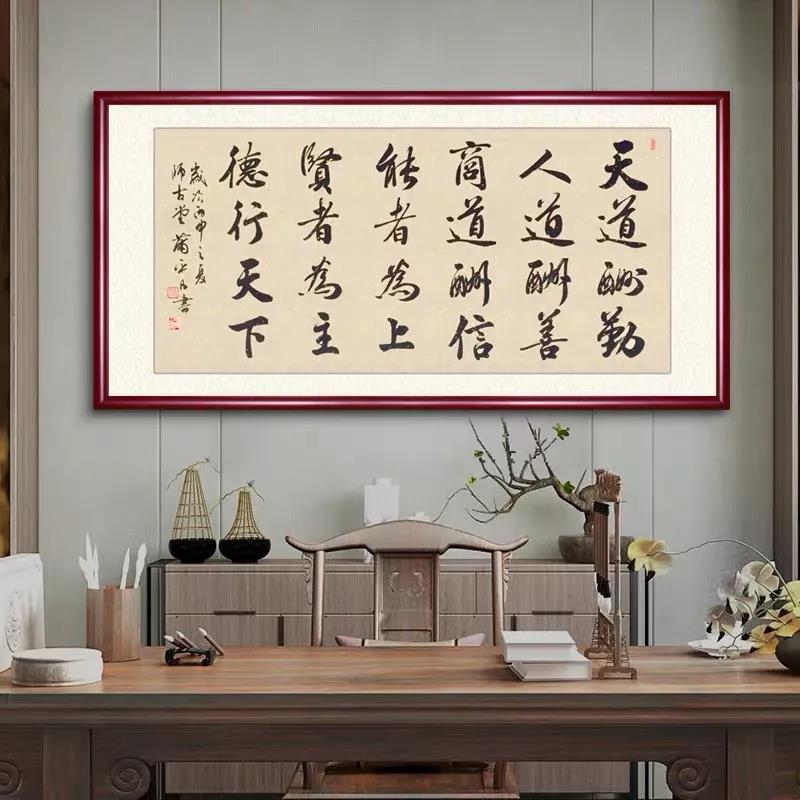 天道酬勤
人道酬善
商道酬信
能者為上
賢者為主
德行天下
歲次丙申之夏
師古堂 書